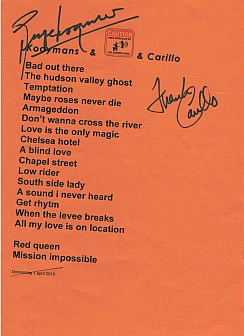 Koopmans & CAUTION & Carillo
Bad out there
The hudson valley ghost
Temptation
Maybe roses never die
Armageddon
Don't wanna cross the river
Love is the only magic
Chelsea hotel
A blind love
Chapel street
Low rider
South side lady
A sound i never heard
Get rhytm
When the levee breaks
All my love is on location
Frank Carillo
Red queen
Mission impossible
Donderdag 1 april 2010